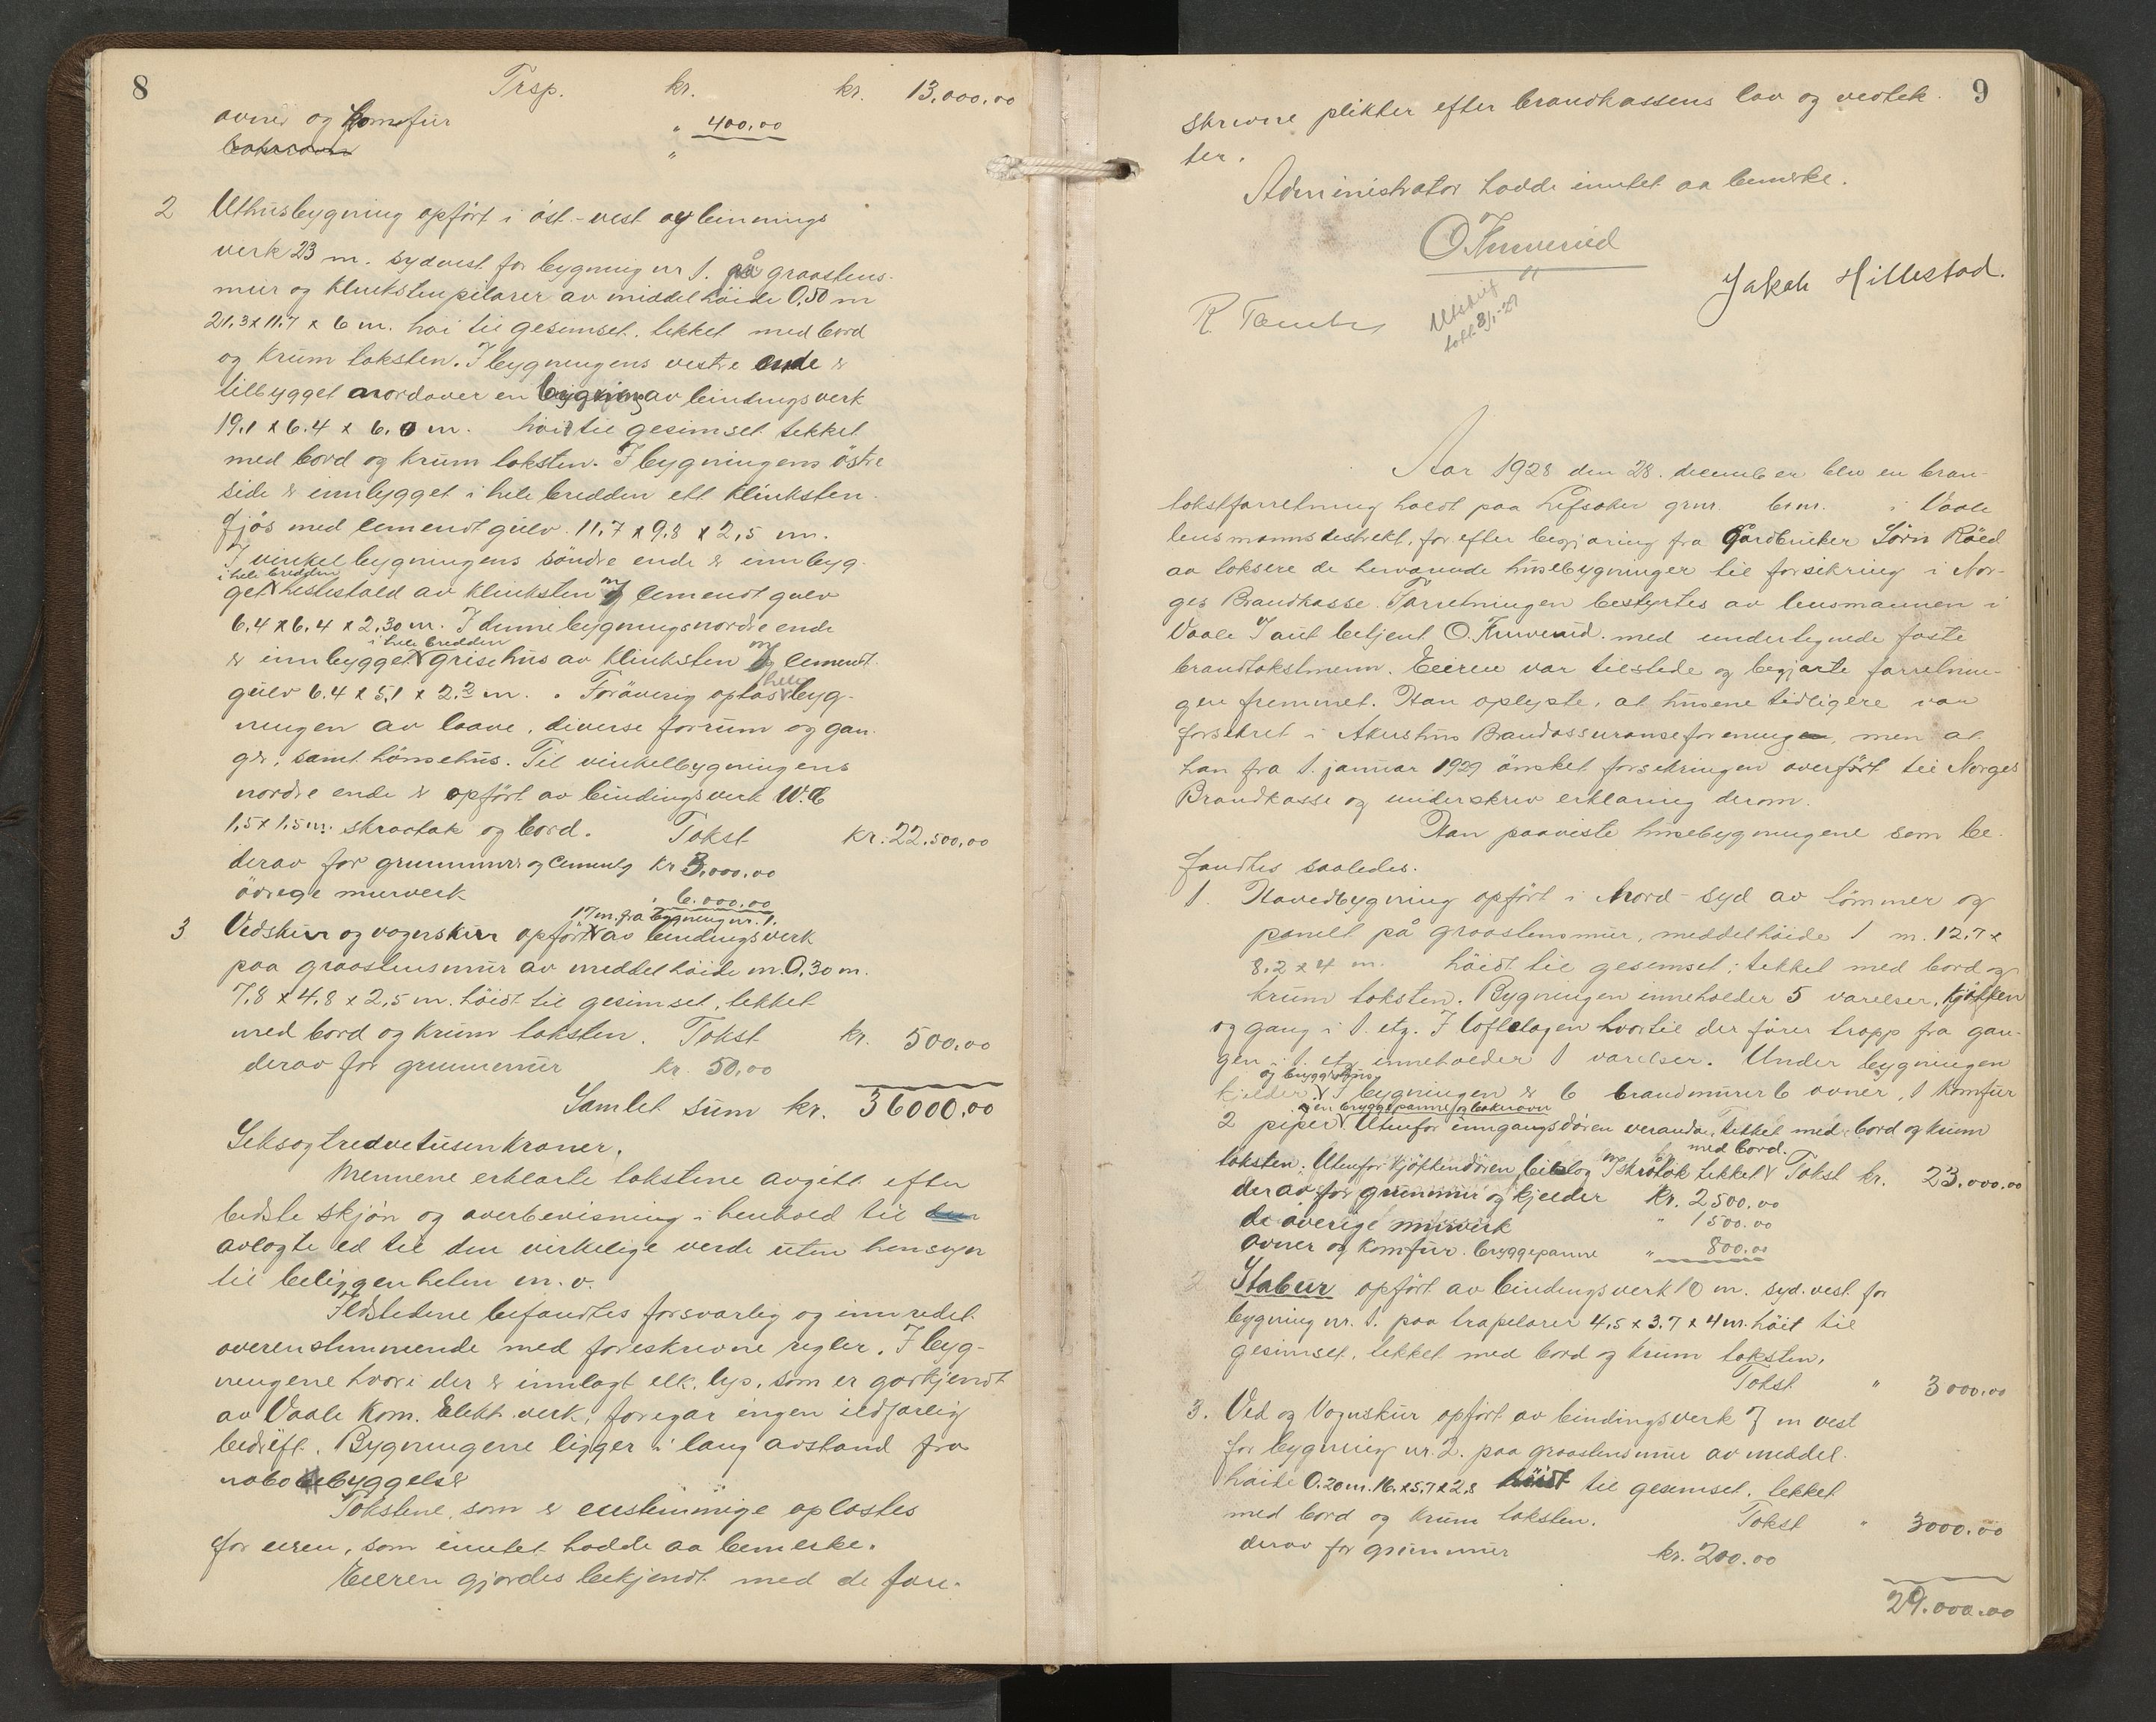 8
Trsp. kr. kr. 13.000,00
ovner og komfur " 400,00
bakerovn "
2 Uthusbygning opført i öst-vest av binnings
verk 23 m. sydvest for bygning nr 1. på graastens-
mur og klinkstenpilarer av middelhöide 0,50 m
21.3 x 11.7 x 6 m. høi til gesimset. tekket med bord
og krum taksten. I bygningens vestre ende er
tilbygget nordover en bygning av bindingsverk
19.1 x 6.4 x 6.0 m. høi til gesimset tekket
med bord og krum taksten. I bygningens östre
side er innbygget i hele bredden ett klinksten
fjös med cementgulv. 11.7 x 9.8 x 2,5 m.
I vinkelbygningens söndre ende er innbyg-
i hele bredden
get hestestald av klinksten m/ cementgulv
6.4 x 6.4 x 2.30 m. I denne bygnings nordre ende
i hele bredden
er innbygget grisehus av klinksten m/ cement-
hele
gulv 6.4 x 5,1 x 2.2 m. . Foröverig optas byg-
ningen av laave, diverse forrum og gan-
ger, samt hönsehus. Til vinkelbygningens
nordre ende er opført av bindingsverk W.C
1,5 x 1,5 m. skraatak og bord. Takst kr. 22.500,00
derav for grunnmur og cement kr 3.000,00
övrige murverk " 6.000,00
17 m. fra bygning nr. 1.
3 Vedskur og vognskur opfört av bindingsverk
paa graastensmur av middelhöide m. 0,30 m.
7,8 x 4,8 x 2,5 m. höidt til gesimset, tekket
med bord og krum taksten. Takst kr. 500,00
derav for grunnmur kr. 50,00
Samlet sum kr. 36000,00
Seksogtredvetusenkroner.
Mennene erklærte takstene avgitt efter
bedste skjøn og overbevisning i henhold til den
avlagte ed til den virkelige verdi uten hensyn
til beliggenheten m. v.
Ildstedene befandtes forsvarlig og innredet
overensstemmende med foreskrevne regler. I byg-
ningene hvori der er innlagt elk. lys, som er godkjendt
av Vaale kom. Elekt. verk, foregår ingen ildsfarlig
bedrift. Bygningene ligger i lang avstand fra
nabobebyggelse
Takstene, som er enstemmige oplæstes
for eieren, som inntet hadde aa bemerke.
Eieren gjordes bekjendt med de fore-
9
skrevne plikter efter brandkassens lov og vedtek-
ter.
Administrator hadde inntet aa bemerke.
Jakob Hillestad.
Utskrift
Aar 1928 den 28. december blev en bran-
takstforretning holdt paa Lefsaker grnr. brnr. i Vaale
lensmannsdistrikt, for efter begjæring fra Gardbruker Sörn Röed
aa taksere de herværende husebygninger til forsikring i Nor-
ges Brandkasse. Forretningen bestyrtes av lensmannen i
Vaale I aut betjent med undertegnede faste
brandtakstmenn. Eieren var tilstede og begjærte forretnin-
gen fremmet. Han oplyste, at husene tidligere var
forsikret i Akershus Brandassuranseforening, men at
han fra 1. januar 1929 önsket forsikringen overfört til Norges
Brandkasse og underskrev erklæring derom.
Han paaviste husebygningene som be-
fandtes saaledes.
1. Hovedbygning opfört i Nord-syd av tömmer og
panelt på graastensmur, middelhöide 1 m. 12.7 x
8.2 x 4 m. höidt til gesimset; tekket med bord og
krum taksten. Bygningen inneholder 5 værelser, kjökken
og gang i 1. etg. I loftetagen hvortil der förer trapp fra gan-
gen i 1. etg inneholder 1 værelser. Under bygningen
og bryggerhus
kjelder. I bygningen er 6 brandmurer 6 ovner, 1 komfur
en bryggepanne og bakerovn
2 piper. Utenfor inngangsdören veranda, tekket med bord og krum
med bord.
taksten. Utenfor kjökkendören bislag m/ skråtak tekket Takst kr. 23.000,00
derav for grunnmur og kjelder kr. 2500.00
de överige murverk " 1500.00
Ovner og komfur. bryggepanne " 800.00
2 Stabur opfört av bindingsverk 10 m. syd.vest for
bygning nr. 1. paa træpelarer 4.5 x 3.7 x 4 m. höit til
gesimset, tekket med bord og krum taksten.
Takst " 3000.00
3. Ved og Vognskur opfört av bindingsverk 7 m vest
for bygning nr. 2. paa graastensmur av middel-
höide 0.20 m. 16. x 5.7 x 2.8 höidt til gesimset. tekket
med bord og krum taksten. Takst " 3000.00
derav for grunnmur kr. 200.00
29.000.00